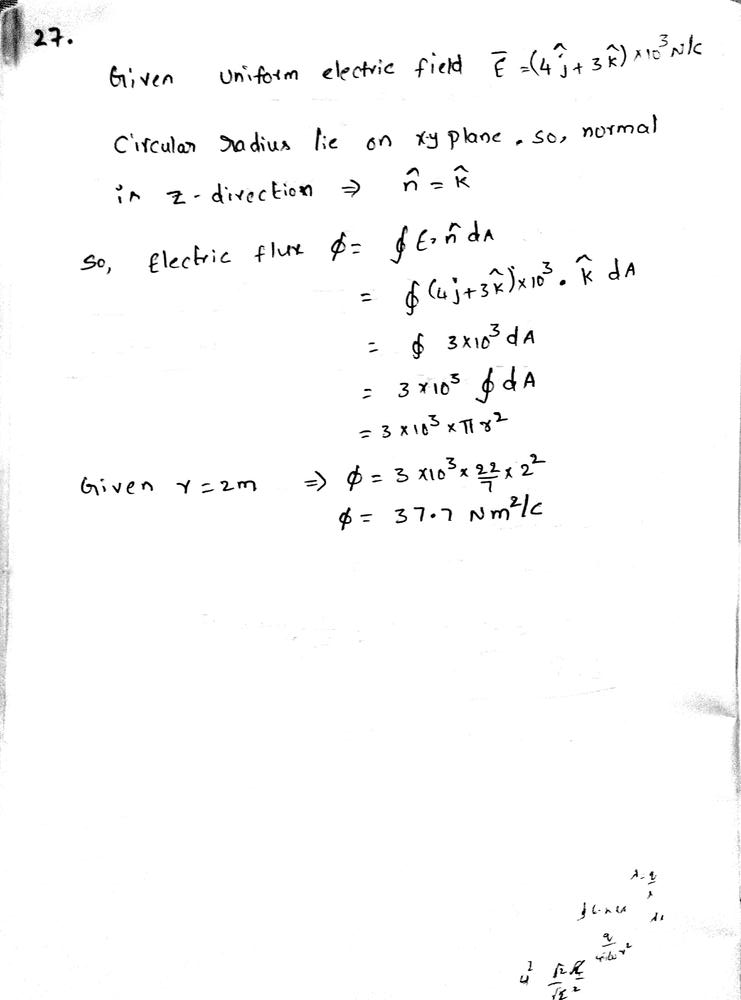 27.
Given uniform electric field E̅ = (4ĵ + 3k̂) × 10³ N/c
Circular radius lie on xy plane. so, normal
in z-direction ⇒ n̂ = k̂
So, Electric flux ϕ = ∮ E. n̂ dA
= ∮ (4j + 3k̂) × 10³ . k̂ dA
= ∮ 3×10³ dA
= 3 × 10³ ∮ dA
= 3 × 10³ × π r²
Given r = 2m ⇒ ϕ = 3 × 10³ × 22/7 × 2²
ϕ = 37.7 Nm²/c